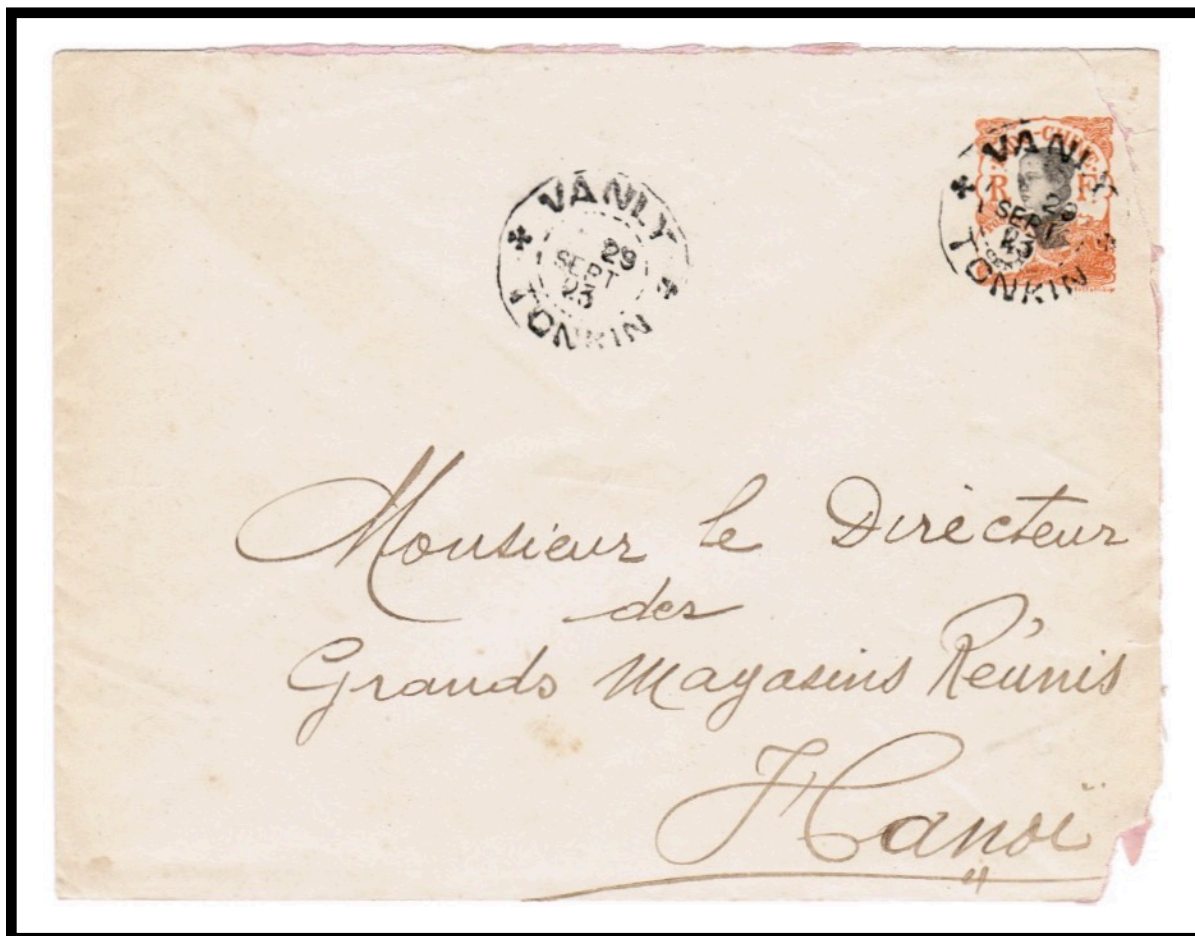 VANLY
29
SEPT
23
TONKIN
VANLY
R F
29
SEPT
23
TONKIN
Monsieur le Directeur
des
Grands Magasins Réunis
Hanoï